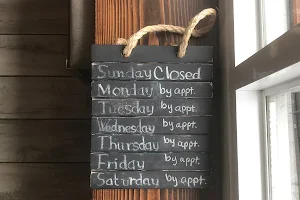 Sunday Closed
Monday by appt.
Tuesday by appt.
Wednesday by appt.
Thursday by appt.
Friday by appt.
Saturday by appt.